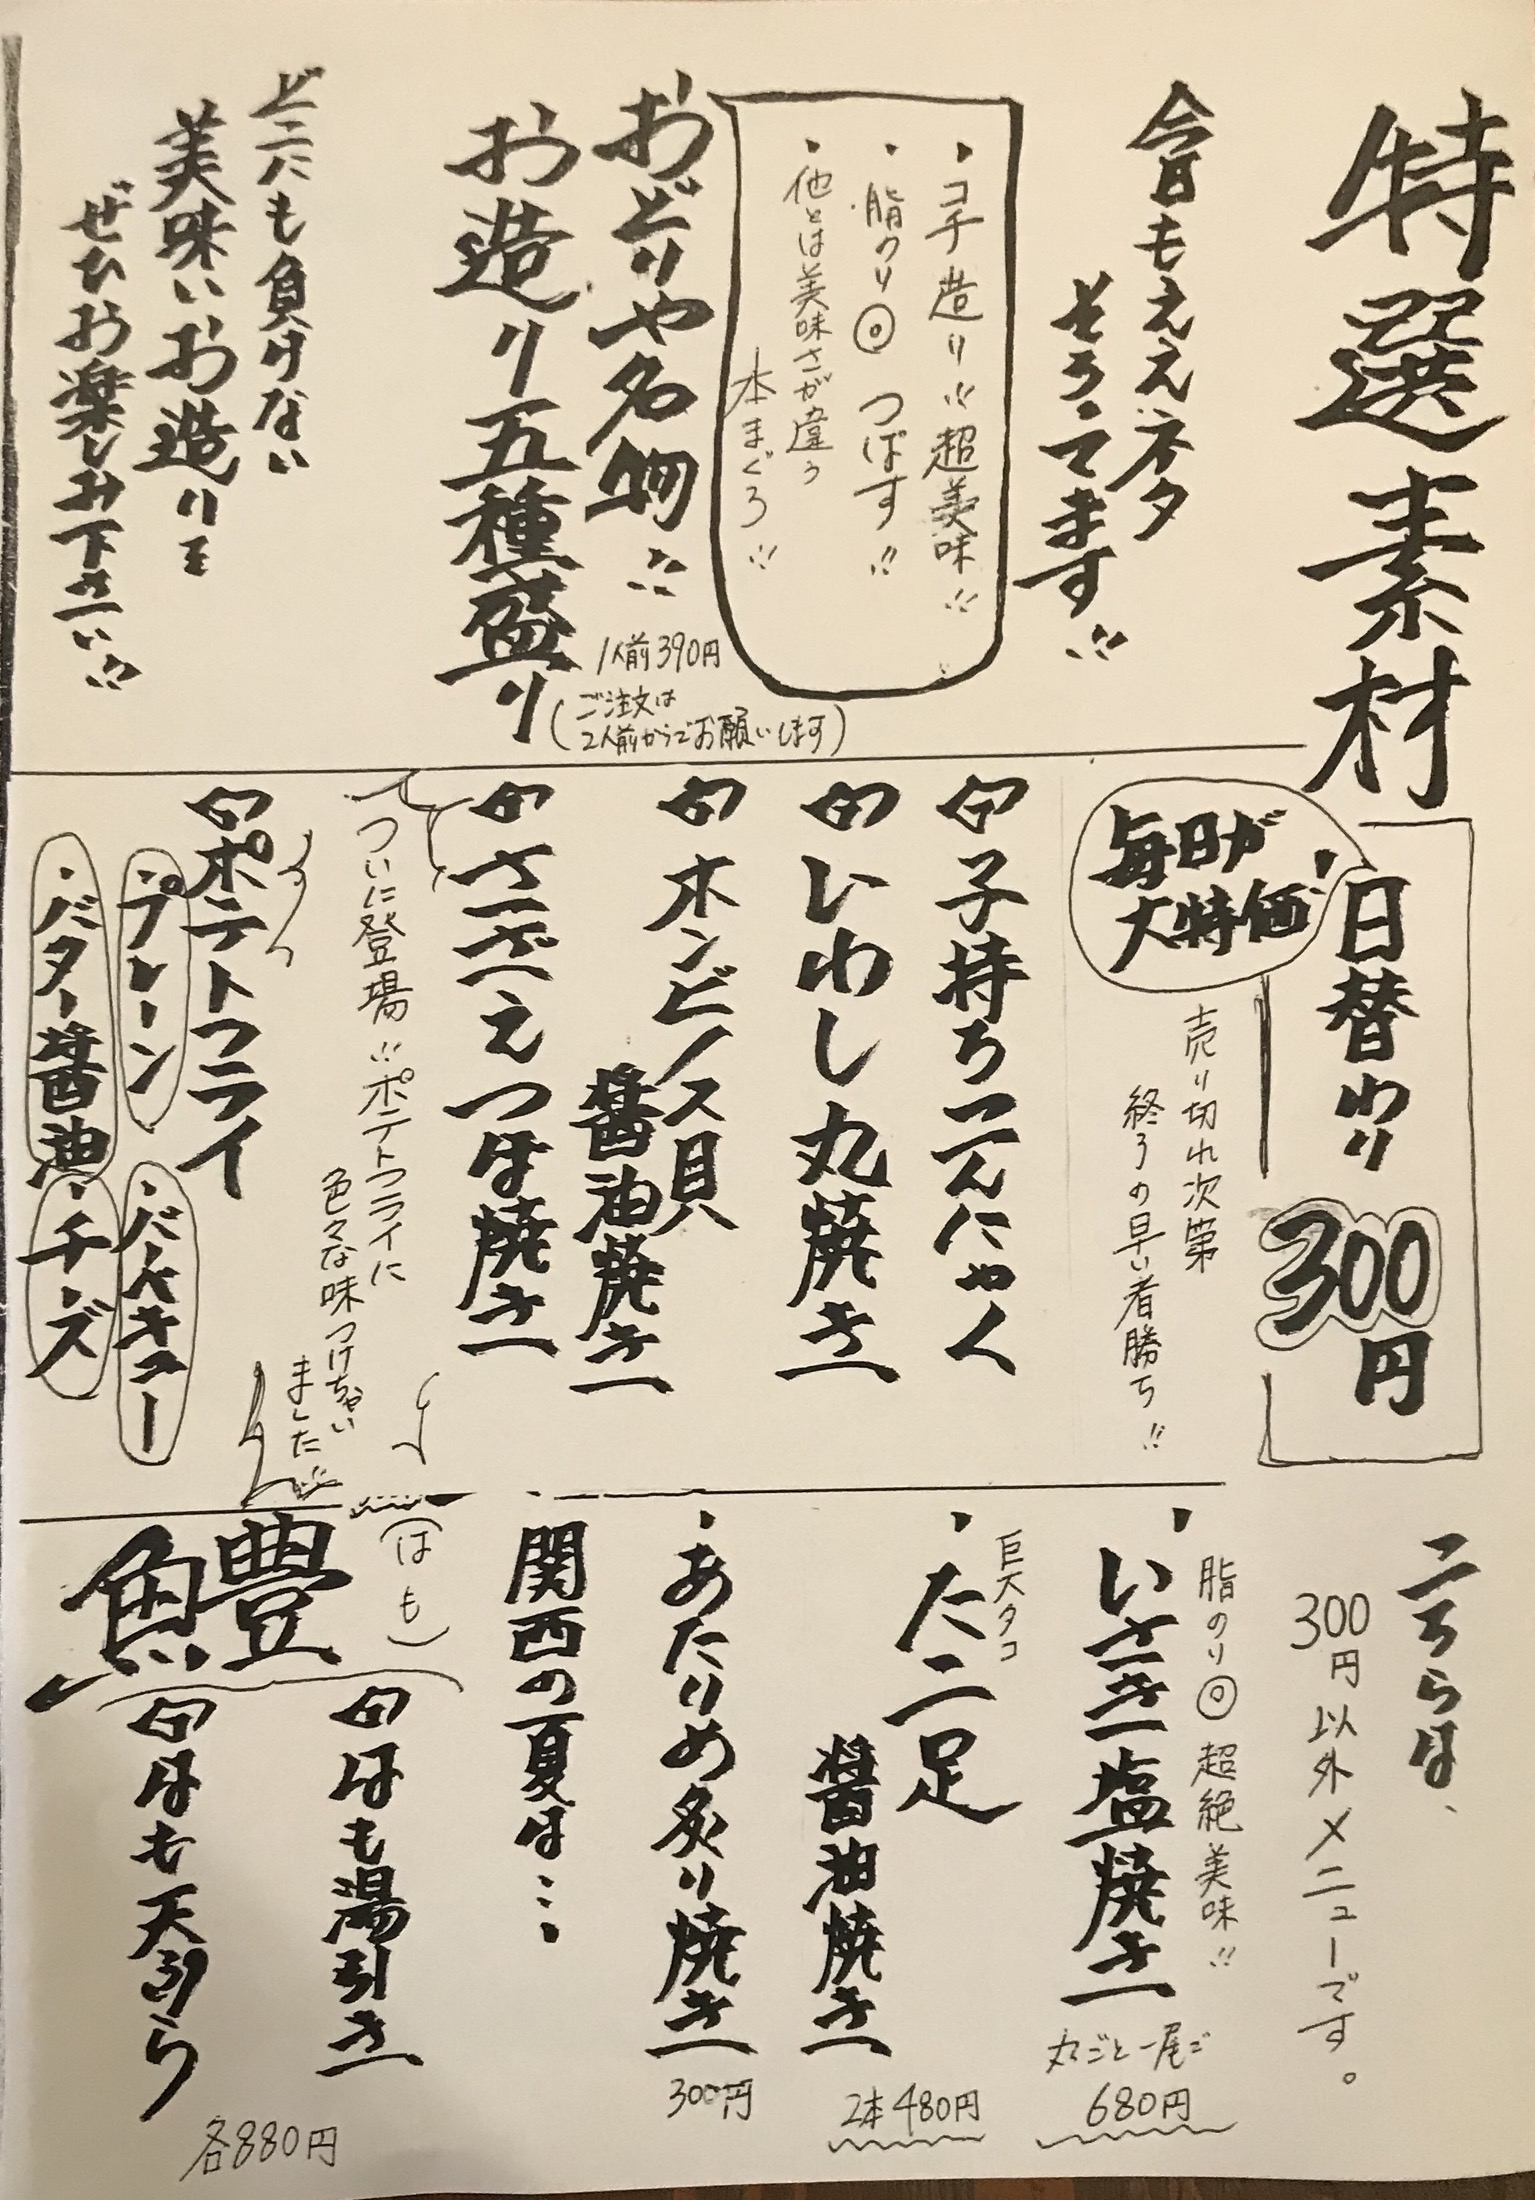 特選素材
今日もええネタ
そろってます!!
・コチ造り!!超美味!!
・脂のり◎つばす!!
・他とは美味さが違う
本まぐろ!!
おどりや名物!!
お造り五種盛り
1人前390円
(ご注文は
2人前からでお願いします)
どこにも負けない
美味いお造りを
ぜひお楽しみ下さい!!
日替わり300円
毎日が
大特価!
売り切れ次第
終うの早い者勝ち!!
子持ちこんにゃく
いわし丸焼き
ホンビノス貝
醤油焼き
さざえつぼ焼き
ついに登場!!ポテトフライに
色々な味つけちゃい
ました!!
ポテトフライ
・プレーン
・バーベキュー
・バター醤油
・チーズ
こちらは、
300円以外メニューです。
脂のり◎超絶美味!!
・いさき塩焼き
丸ごと一尾ご
680円
巨大タコ
・たこ足
醤油焼き
2本480円
・あたりめ炙り焼き
300円
関西の夏は…
(はも)
鱧
はも湯引き
はも天ぷら
各880円